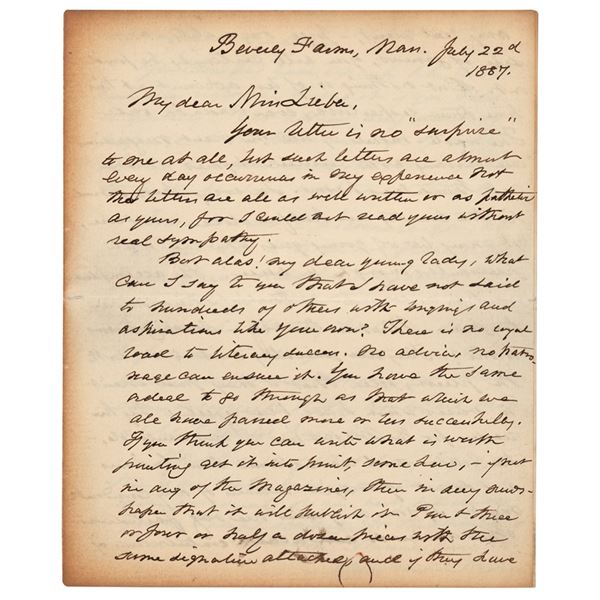 Beverly Farms, Mass. July 22d
1887.
My dear Miss Lieber,
Your letter is no "surprise"
to me at all, but such letters are almost
every day occurrences in my experience not
that letters are all as well written or as pathetic
as yours, for I could not read yours without
real sympathy.
But alas! my dear young lady, what
can I say to you that I have not said
to hundreds of others with longings and
aspirations like your own? There is no royal
road to literary success. No advice, no patro-
nage can ensure it. You have the same
ordeal to go through as that which we
all have passed more or less successfully.
If you think you can write what is worth
printing get it into print, somehow, – if not
in any of the Magazines, then in any news-
paper that it will publish it. Print three
or four or half a dozen pieces with the
same signature attached, and if they have